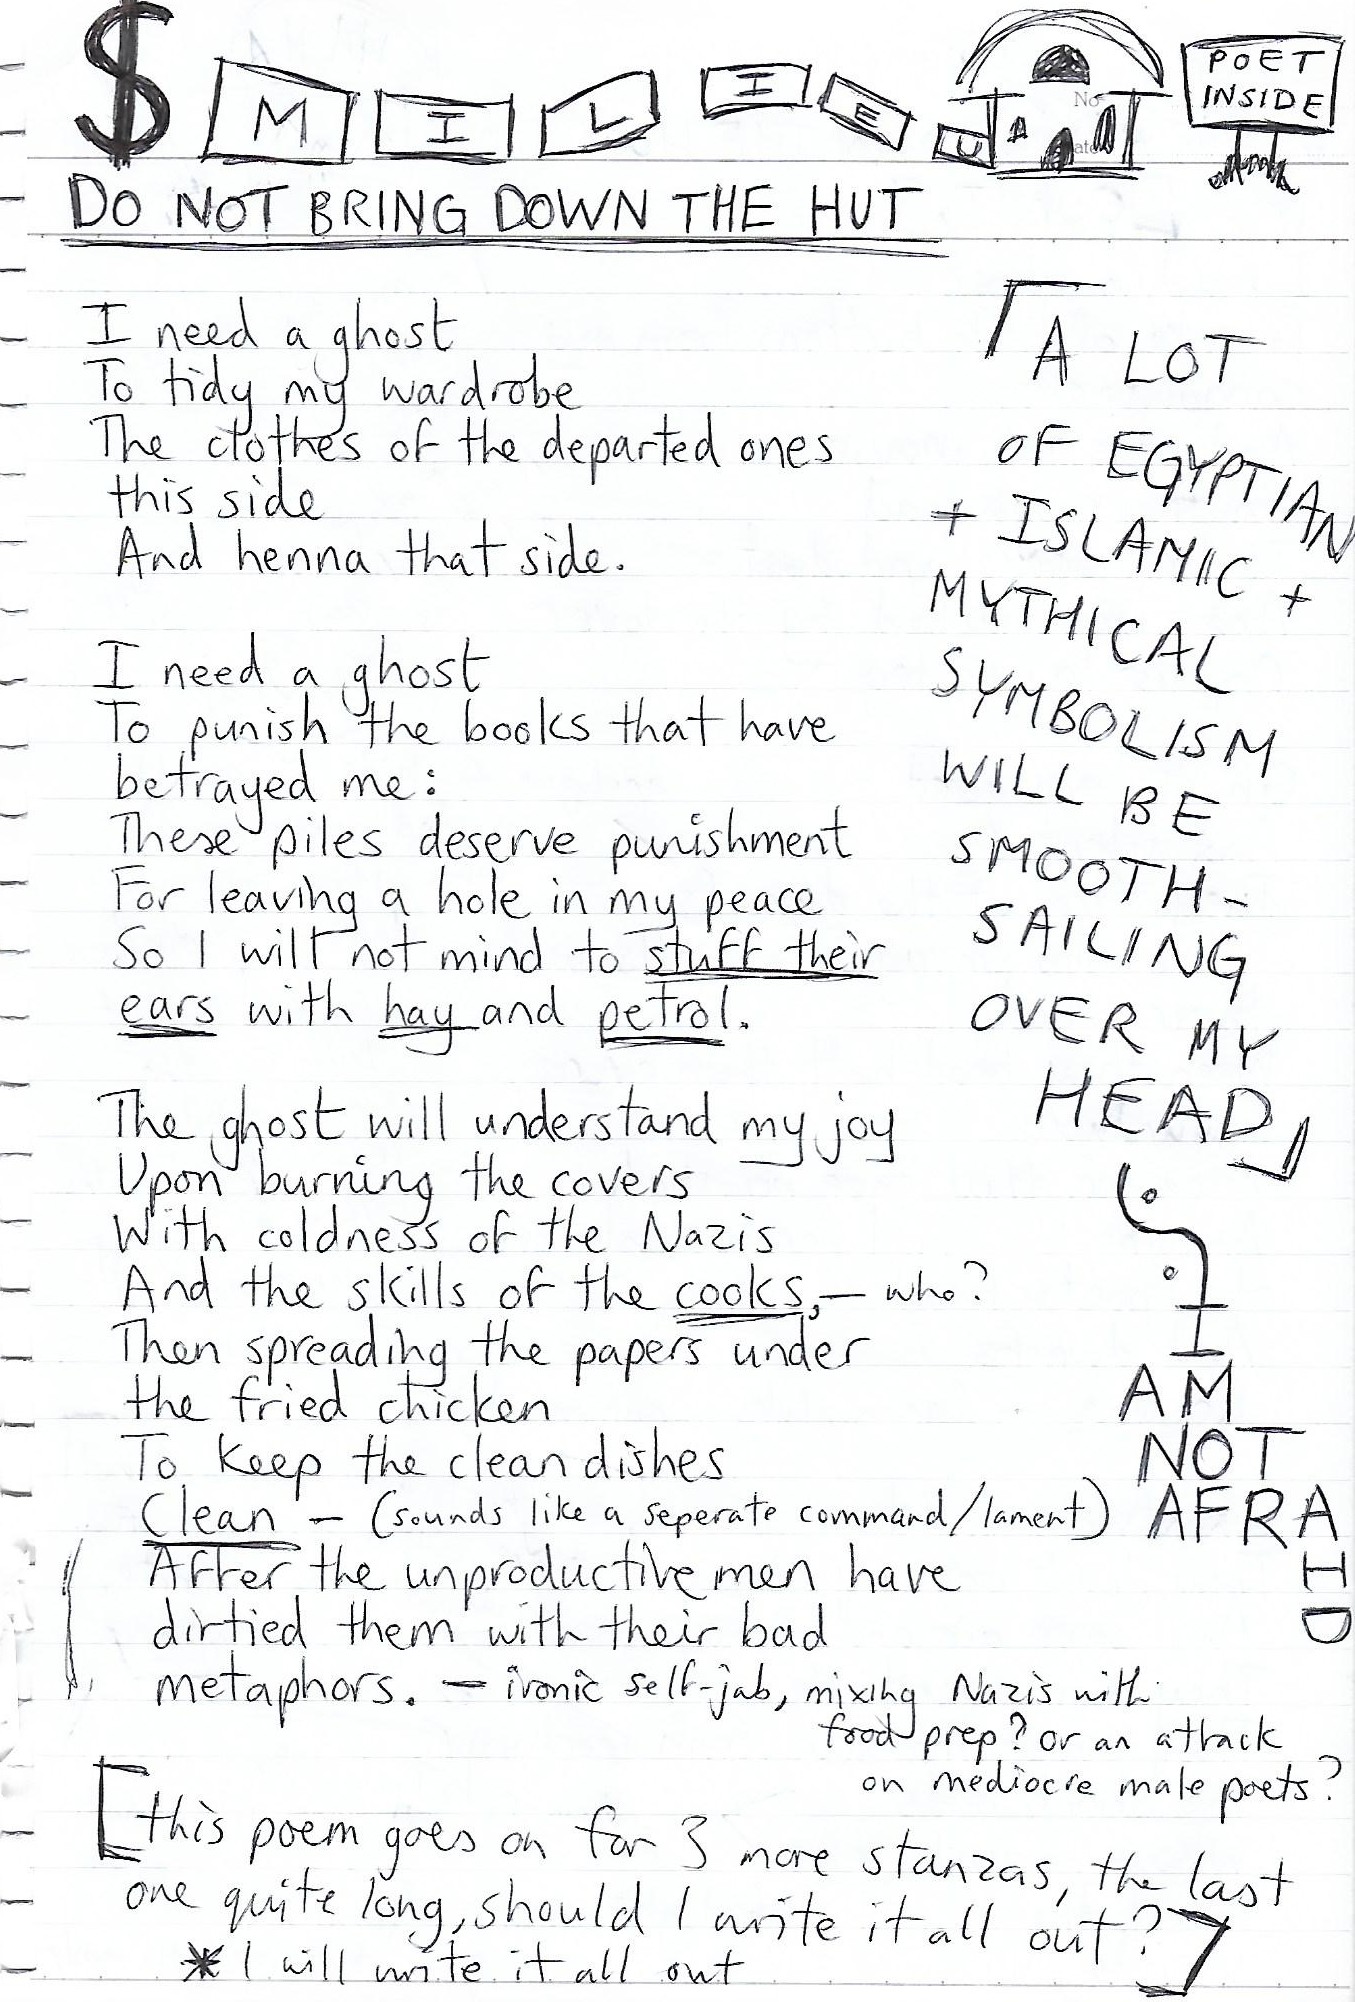 $ M I L I E U
POET
INSIDE
No
ate
DO NOT BRING DOWN THE HUT
I need a ghost
To tidy my wardrobe
The clothes of the departed ones
this side
And henna that side.
I need a ghost
To punish the books that have
betrayed me:
These piles deserve punishment
For leaving a hole in my peace
So I will not mind to stuff their
ears with hay and petrol.
The ghost will understand my joy
Upon burning the covers
With coldness of the Nazis
And the skills of the cooks, — who?
Then spreading the papers under
the fried chicken
To keep the clean dishes
Clean — (sounds like a seperate command/lament)
After the unproductive men have
dirtied them with their bad
metaphors. — ironic self-jab, mixing Nazis with
food prep? or an attack
on mediocre male poets?
[this poem goes on for 3 more stanzas, the last
one quite long, should I write it all out?]
* I will write it all out
「A LOT
OF EGYPTIAN
+ ISLAMIC +
MYTHICAL
SYMBOLISM
WILL BE
SMOOTH-
SAILING
OVER MY
HEAD」
I
AM
NOT
AFRA
I
D